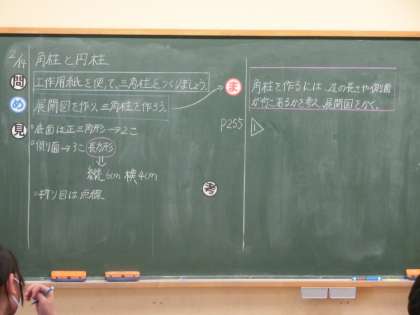 2/14
角柱と円柱
問 工作用紙を使って、三角柱をつくりましょう。
め 展開図を作り、三角柱を作ろう。
見 ・底面は正三角形→2こ
・側面→3こ 長方形
縦6cm 横4cm
・切り目は点線
ま 角柱を作るには、辺の長さや側面
がいくつあるかを考え、展開図をかく。
P255
考